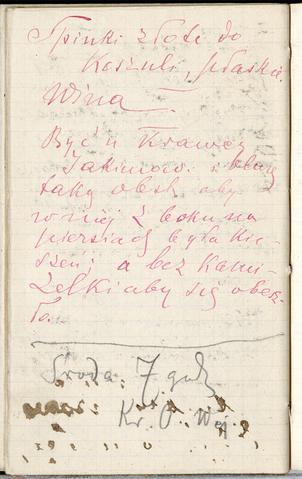 Spinki złote do
Koszuli, płaskie.
Wina —
Być u Krawcy
Jakimow. i bluzę
taką obst. aby
w niej z boku na
piersiach była kie-
szeń; a bez Kami-
zelki aby się obesz-
ło.
Środa. 7 godz
Kr. O. Wej